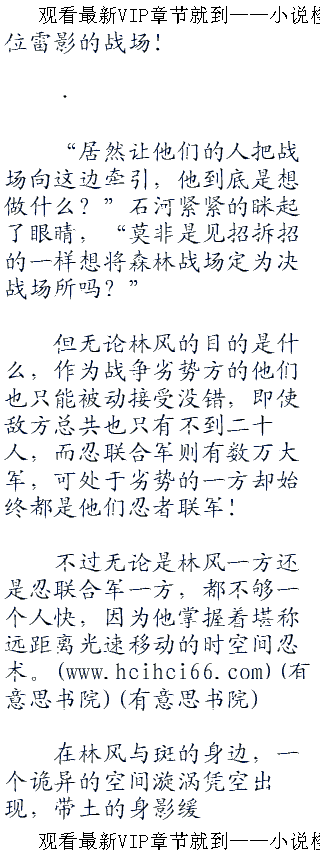 观看最新VIP章节就到——小说
位雷影的战场！
．
“居然让他们的人把战
场向这边牵引，他到底是想
做什么？”石河紧紧的眯起
了眼睛，“莫非是见招拆招
的一样想将森林战场定为决
战场所吗？”
但无论林风的目的是什
么，作为战争劣势方的他们
也只能被动接受没错，即使
敌方总共也只有不到二十
人，而忍联合军则有数万大
军，可处于劣势的一方却始
终都是他们忍者联军！
不过无论是林风一方还
是忍联合军一方，都不够一
个人快，因为他掌握着堪称
远距离光速移动的时空间忍
术。(www.hcihci66.com)(有
意思书院)(有意思书院)
在林风与斑的身边，一
个诡异的空间漩涡凭空出
现，带土的身影缓
观看最新VIP章节就到——小说